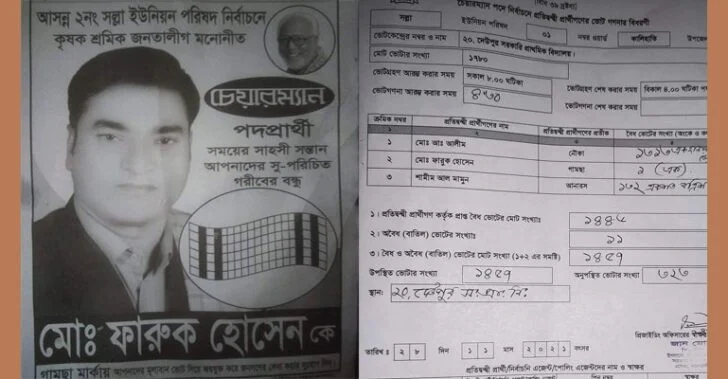 আসন্ন ২নং সল্লা ইউনিয়ন পরিষদ নির্বাচনে
কৃষক শ্রমিক জনতালীগ মনোনীত
চেয়ারম্যান
পদপ্রার্থী
সময়ের সাহসী সন্তান
আপনাদের সু-পরিচিত
গরীবের বন্ধু
মোঃ ফারুক হোসেন কে
গামছা মার্কায় আপনাদের মূল্যবান ভোট দিয়ে জয়যুক্ত করে জনগণের সেবা করার সুযোগ দিন।
চেয়ারম্যান পদে নির্বাচনে প্রতিদ্বন্দ্বী প্রার্থীগণের ভোট গণনার বিবরণী
সল্লা ইউনিয়ন পরিষদ ০১ নম্বর ওয়ার্ড কালিহাতি উপজেলা
ভোটকেন্দ্রের নম্বর ও নাম ২০. দেউপুর সরকারি প্রাথমিক বিদ্যালয়।
মোট ভোটার সংখ্যা ১৭৮০
ভোটগ্রহণ আরম্ভ করার সময় সকাল ৮.০০ ঘটিকা ভোটগ্রহণ শেষ করার সময় বিকাল ৪.০০ ঘটিকা
ভোটগণনা আরম্ভ করার সময় ভোটগণনা শেষ করার সময়
ক্রমিক নম্বর প্রতিদ্বন্দ্বী প্রার্থীগণের নাম প্রতিদ্বন্দ্বী প্রার্থীগণের প্রতীক বৈধ ভোটের সংখ্যা (অংকে ও
১ ২ ৩
১ মোঃ আঃ আলীম নৌকা
২ মোঃ ফারুক হোসেন গামছা ১ (এক)
৩ শামীম আল মামুন আনারস ১৩২
১। প্রতিদ্বন্দ্বী প্রার্থীগণ কর্তৃক প্রাপ্ত বৈধ ভোটের মোট সংখ্যাঃ
২। অবৈধ (বাতিল) ভোটের সংখ্যাঃ ১১
৩। বৈধ ও অবৈধ (বাতিল) ভোটের মোট সংখ্যা (১+২ এর সমষ্টি)
উপস্থিত ভোটার সংখ্যা অনুপস্থিত ভোটার সংখ্যা
স্থানঃ ২০, দেউপুর
প্রিজাইডিং অফিসারের
তারিখঃ ২৮ দিন ১১ মাস ২০২১ বৎসর
প্রতিদ্বন্দ্বী প্রার্থী/নির্বাচনি এজেন্ট/পোলিং এজেন্টদের নাম ও স্বাক্ষর